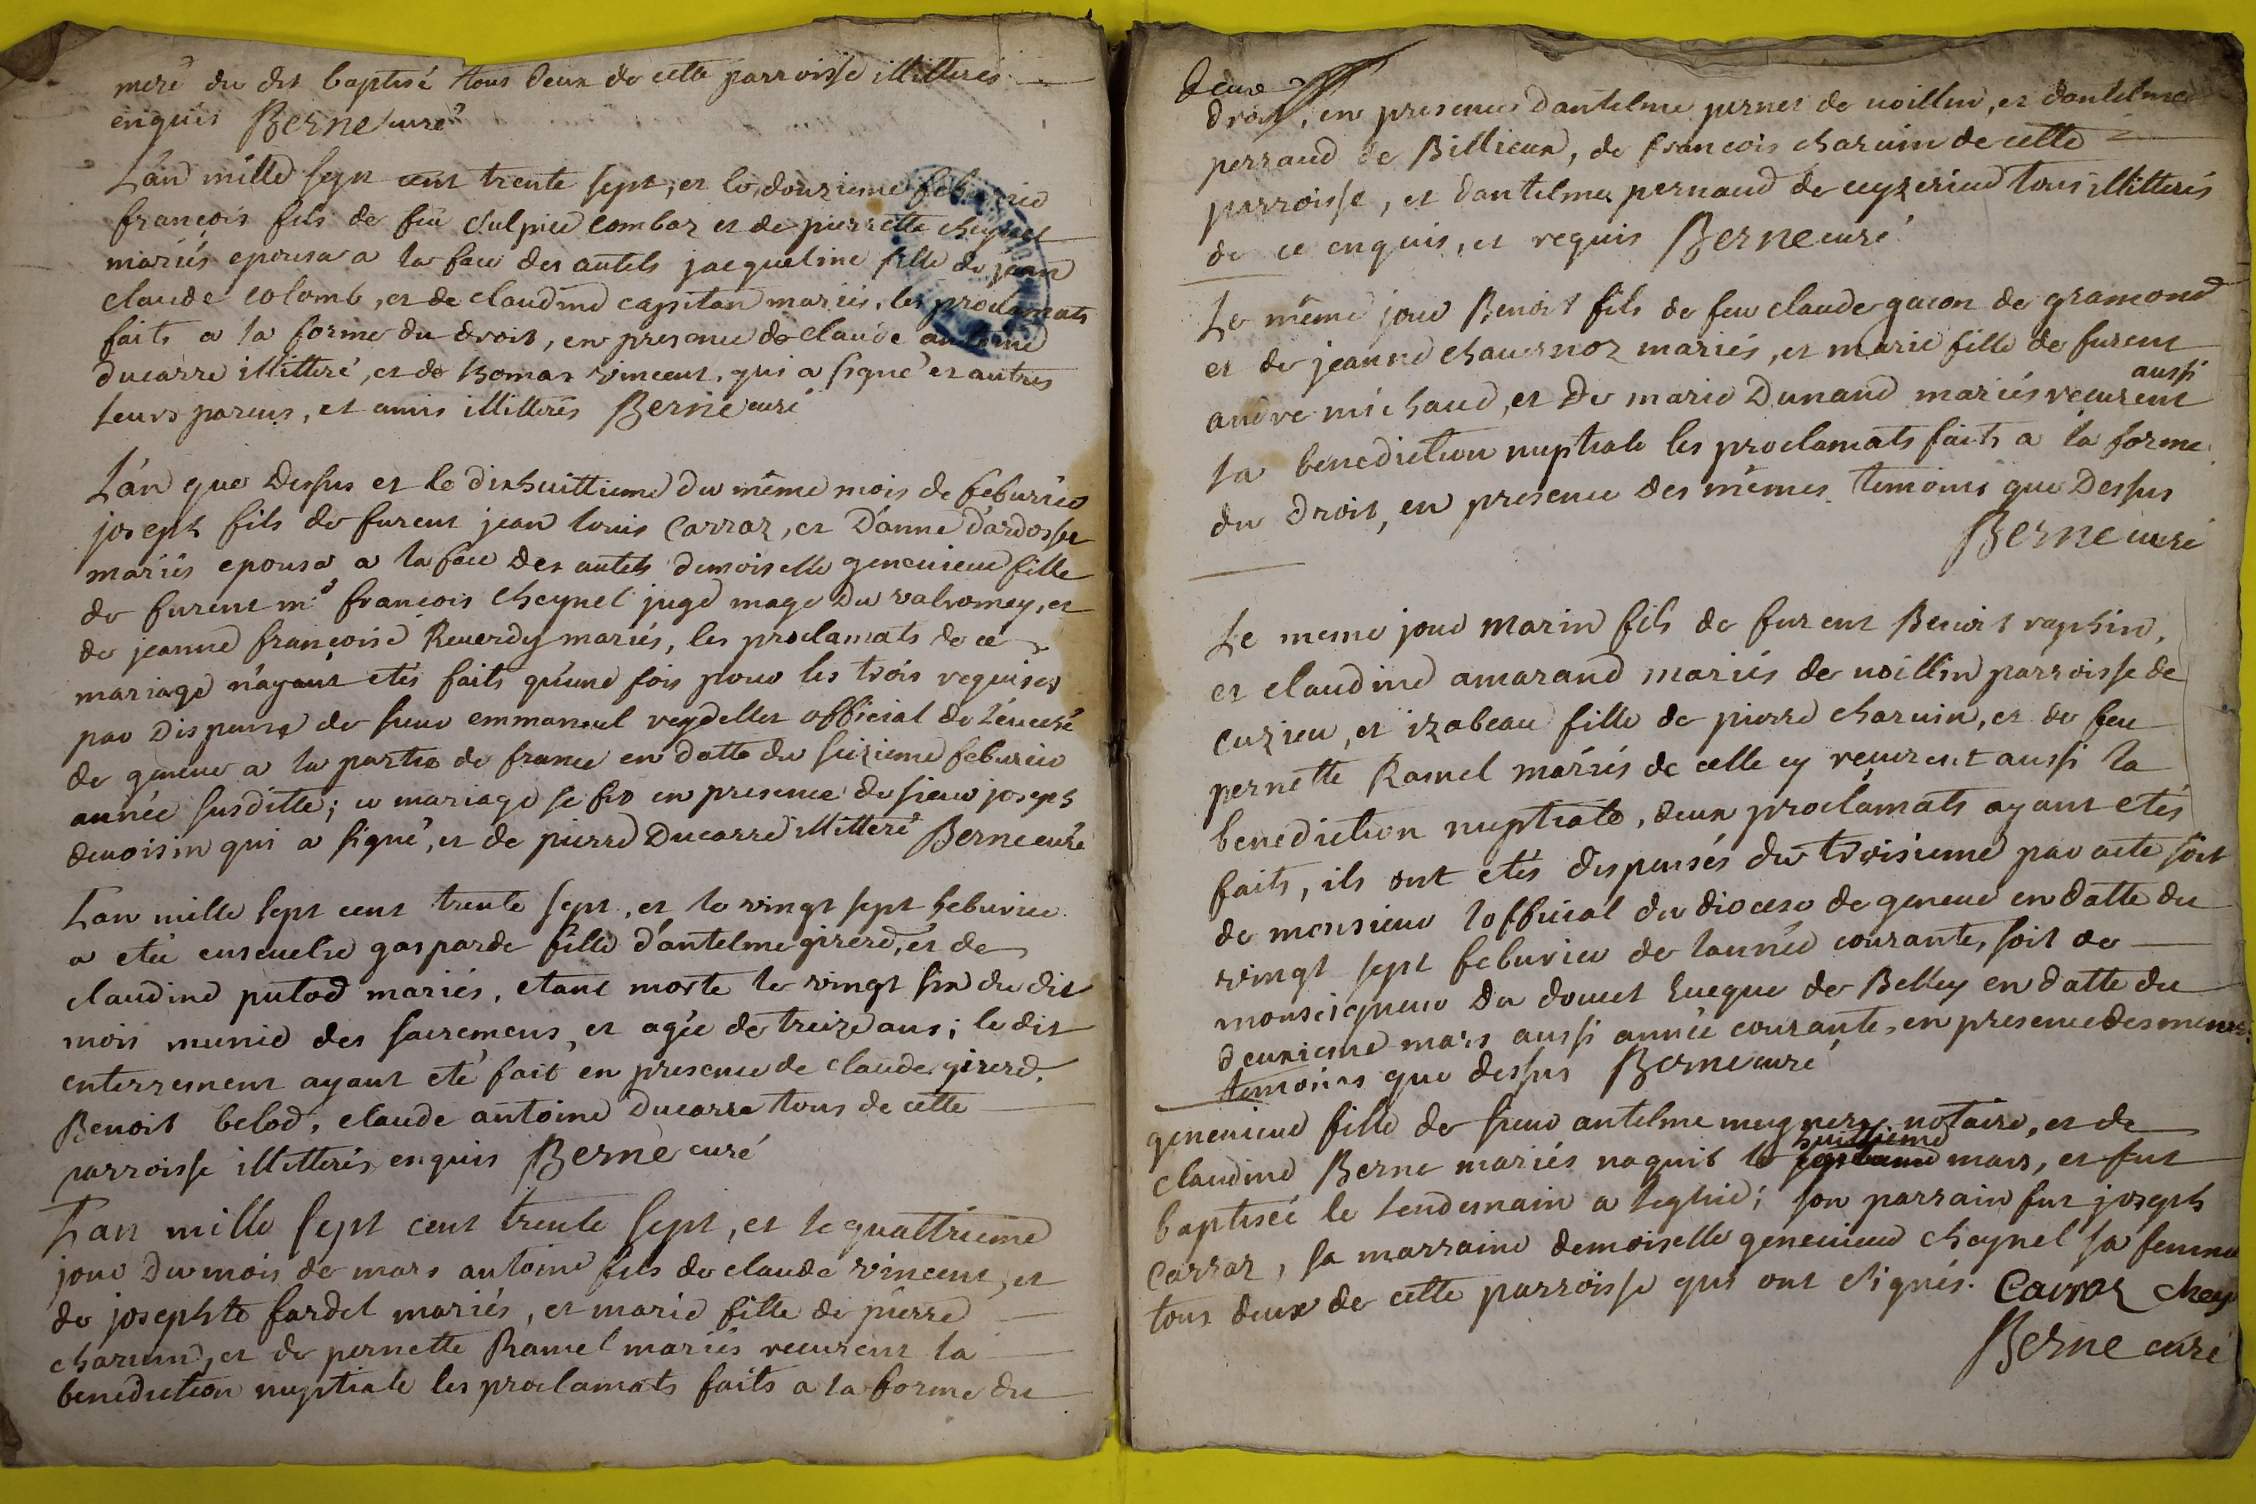 mere du dit baptisé tous deux de cette parroisse illitterés
enquis Berne curé
L'an mille sept cent trente sept, et le douzieme feburier
françois fils de feu Sulpice Combaz et de pierrette cheynel
mariés epousa a la face des autels jacqueline fille de jean
claude colomb, et de claudine capitan mariés, les proclamats
faits a la forme du droit, en presence de claude antoine
ducarre illitteré, et de thomas vincent, qui a signé et autres
leurs parens, et amis illitterés Berne curé
L'an que dessus et le dixhuittieme du même mois de feburier
joseph fils de furent jean louis Carraz, et d'anne d'ardosset
mariés epousa a la face des autels demoiselle genevieve fille
de furent mr françois cheynel juge mage du valromey, et
de jeanne françoise Reverdy mariés, les proclamats de ce
mariage n'ayant etés faits qu'une fois pour les trois requises
par dispense de sieur emmanuel reydellet official de l'eveché
de geneve a la partie de france en datte du seizieme feburier
année susditte; ce mariage se fit en presence de sieur joseph
devoisin qui a signé, et de pierre Ducarre illitteré Berne curé
L'an mille sept cent trente sept, et le vingt sept feburier
a eté ensevelie gasparde fille d'antelme girerd, et de
claudine putod mariés, etant morte le vingt six du dit
mois munie des sacremens, et agée de treize ans; le dit
enterrement ayant eté fait en presence de claude girerd,
Benoit belod, claude antoine Ducarre tous de cette
parroisse illitterés enquis Berne curé
L'an mille sept cent trente sept, et le quattrieme
jour du mois de mars antoine fils de claude vincent, et
de josephte fardel mariés, et marie fille de pierre
charvin, et de pernette Ramel mariés reçurent la
benediction nuptiale les proclamats faits a la forme du
deux
droit, en presence d'antelme pernet de voillin, et d'antelme
perraud de Billieux, de françois charvin de cette
parroisse, et d'antelme pernaud de ceyzerieu tous illitterés
de ce enquis, et requis Berne curé
Le même jour Benoit fils de feu claude gacon de gramond
et de jeanne chavernoz mariés, et marie fille de furent
aussi
andre michaud, et de marie Dunand mariés reçurent
la benediction nuptiale les proclamats faits a la forme
du droit, en presence des mêmes temoins que dessus
Berne curé
Le meme jour marin fils de furent Benoit raphin,
et claudine amarand mariés de voillin parroisse de
cuzieu, et izabeau fille de pierre charvin, et de feu
pernette Ramel mariés de celle cy reçurent aussi la
benediction nuptiale, deux proclamats ayant etés
faits, ils ont etés dispensés du troisieme par acte soit
de monsieur l'official du diocese de geneve en datte du
vingt sept feburier de l'année courante, soit de
monseigneur Du doucet Eveque de Belley en datte du
deuxieme mars aussi année courante, en presence des memes
temoins que dessus Berne curé
genevieve fille de sieur antelme mugnery notaire, et de
huittieme
claudine Berne mariés naquit le septieme mars, et fut
baptisée le lendemain a leglise; son parrain fut joseph
Carraz, sa marraine demoiselle genevieve cheynel sa femme
tous deux de cette parroisse qui ont signés. Carraz chey
Berne curé